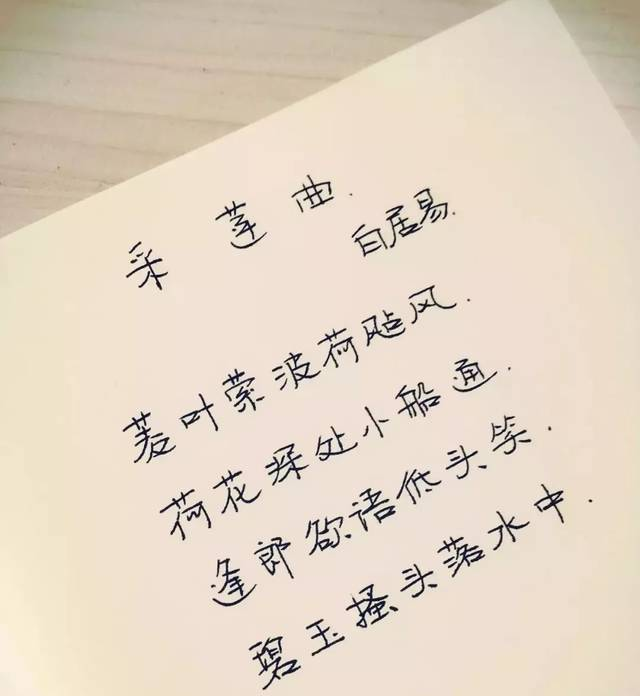 采莲曲.
白居易.
菱叶萦波荷飐风.
荷花深处小船通.
逢郎欲语低头笑.
碧玉搔头落水中.